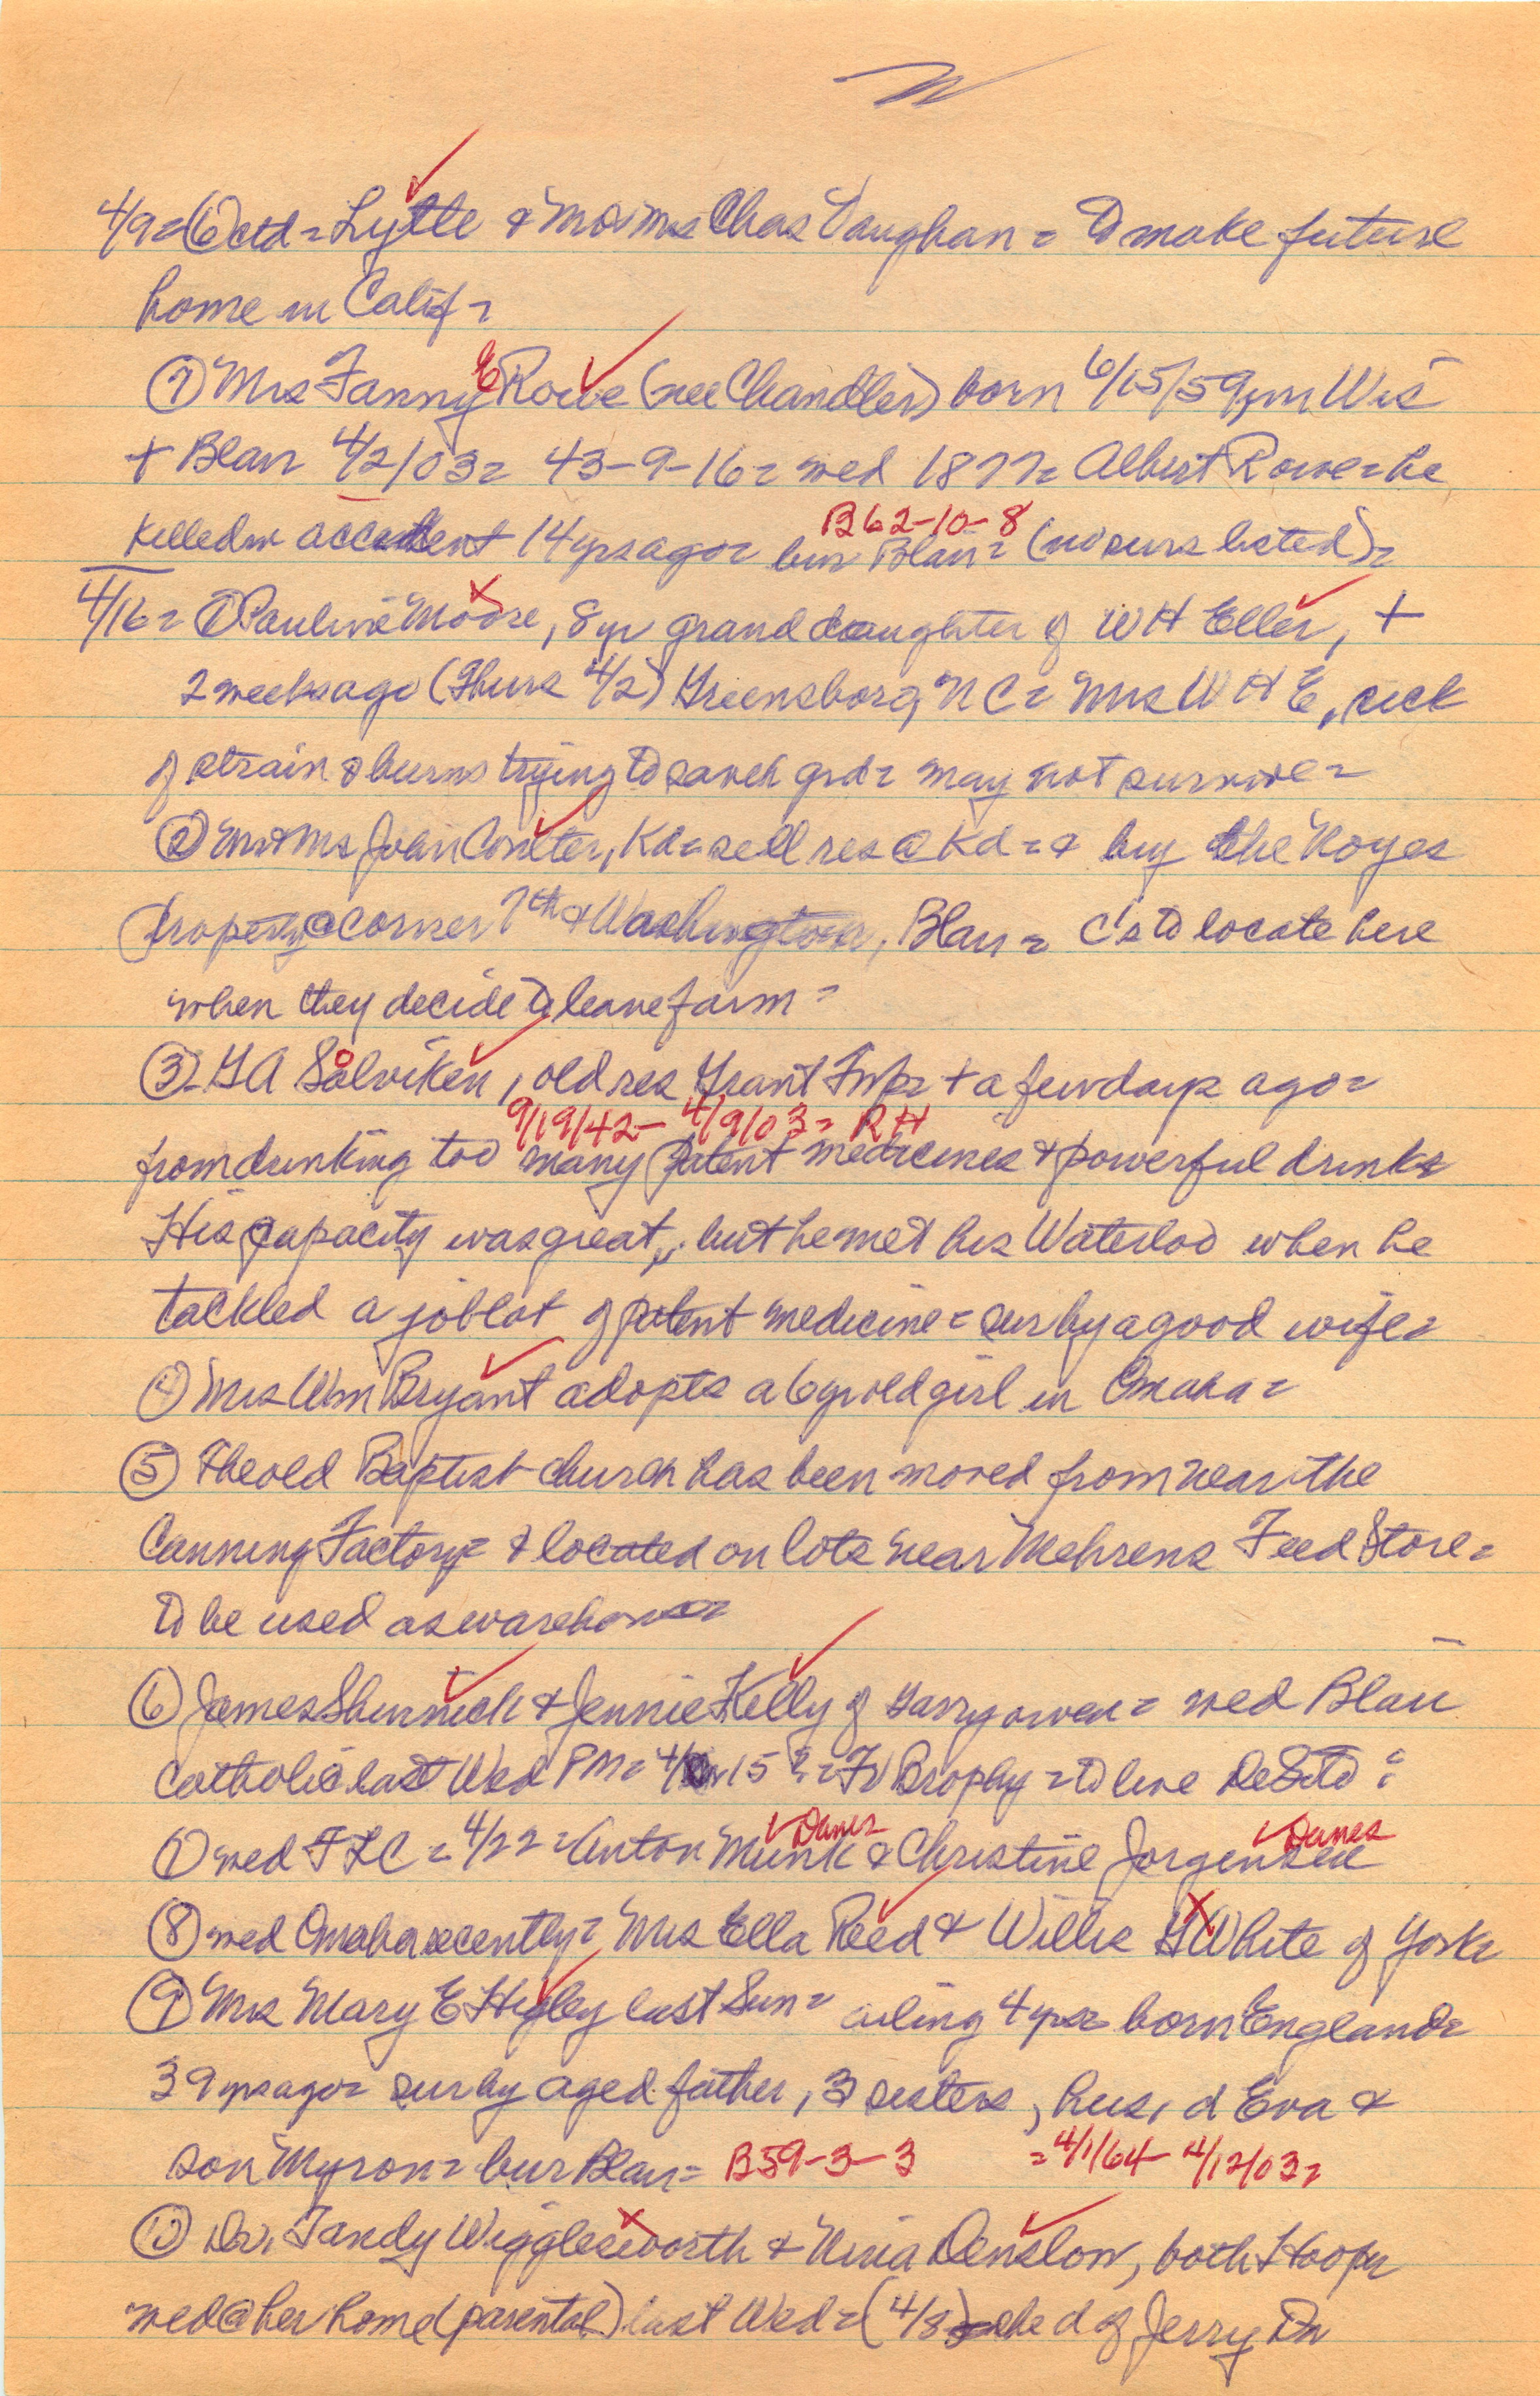 4/9= ⑥ ctd = Lyttle & Mr & Mrs Chas Vaughan = to make future
home in Calif =
⑦ Mrs Fanny E Rowe (nee Chandler) born 6/15/59, in Wis
+ Blair 4/2/03 = 43-9-16 = wed 1877 = Albert Rowe = he
killed in accident 14 yrs ago = bur Blair = (no surs listed) =
B62-10-8
4/16 = ① Pauline Moore, 8 yr grand daughter of W H Eller, +
2 weeks ago (Thurs 4/2) Greensboro, N C = Mrs W H E, sick
of strain & burns trying to save h grd = may not survive =
② Mr & Mrs John Coulter, Kd = sell res @ Kd = & buy the Noyes
property @ corner 7th & Washington, Blair = C's to locate here
when they decide to leave farm =
③ G A Solviken, old res Grant Twp = + a few days ago =
9/19/42 - 4/9/03 = R H
from drinking too many patent medicines & powerful drinks
His capacity was great, but he met his Waterloo when he
tackled a job lot of patent medicine = sur by a good wife =
④ Mrs Wm Bryant adopts a 6 yr old girl in Omaha =
⑤ The old Baptist church has been moved from near the
Canning Factory = & located on lots near Mehrens Feed Store =
to be used as warehouse
⑥ James & Jennie Kelly of Garryowen = wed Blair
Catholic last Wed PM = 4/ 15 ? = Fr Brophy = to live DeSoto =
⑦ wed FLC = 4/22 = Anton Munk & Christine Jorgensen
Danes Danes
⑧ wed Omaha recently = Mrs Ella Reed & Willis White of York
⑨ Mrs Mary E Higley last Sun = ailing 4 yrs = born England =
39 yrs ago = sur by aged father, 3 sisters, hus, d Eva &
son Myron = bur Blair = B59-3-3 = 4/1/64 - 4/12/03 =
⑩ Dr. Tandy Wigglesworth & Nina Denslow, both Hooper
wed @ her home (parental) last Wed = (4/8) she d of Jerry Dn